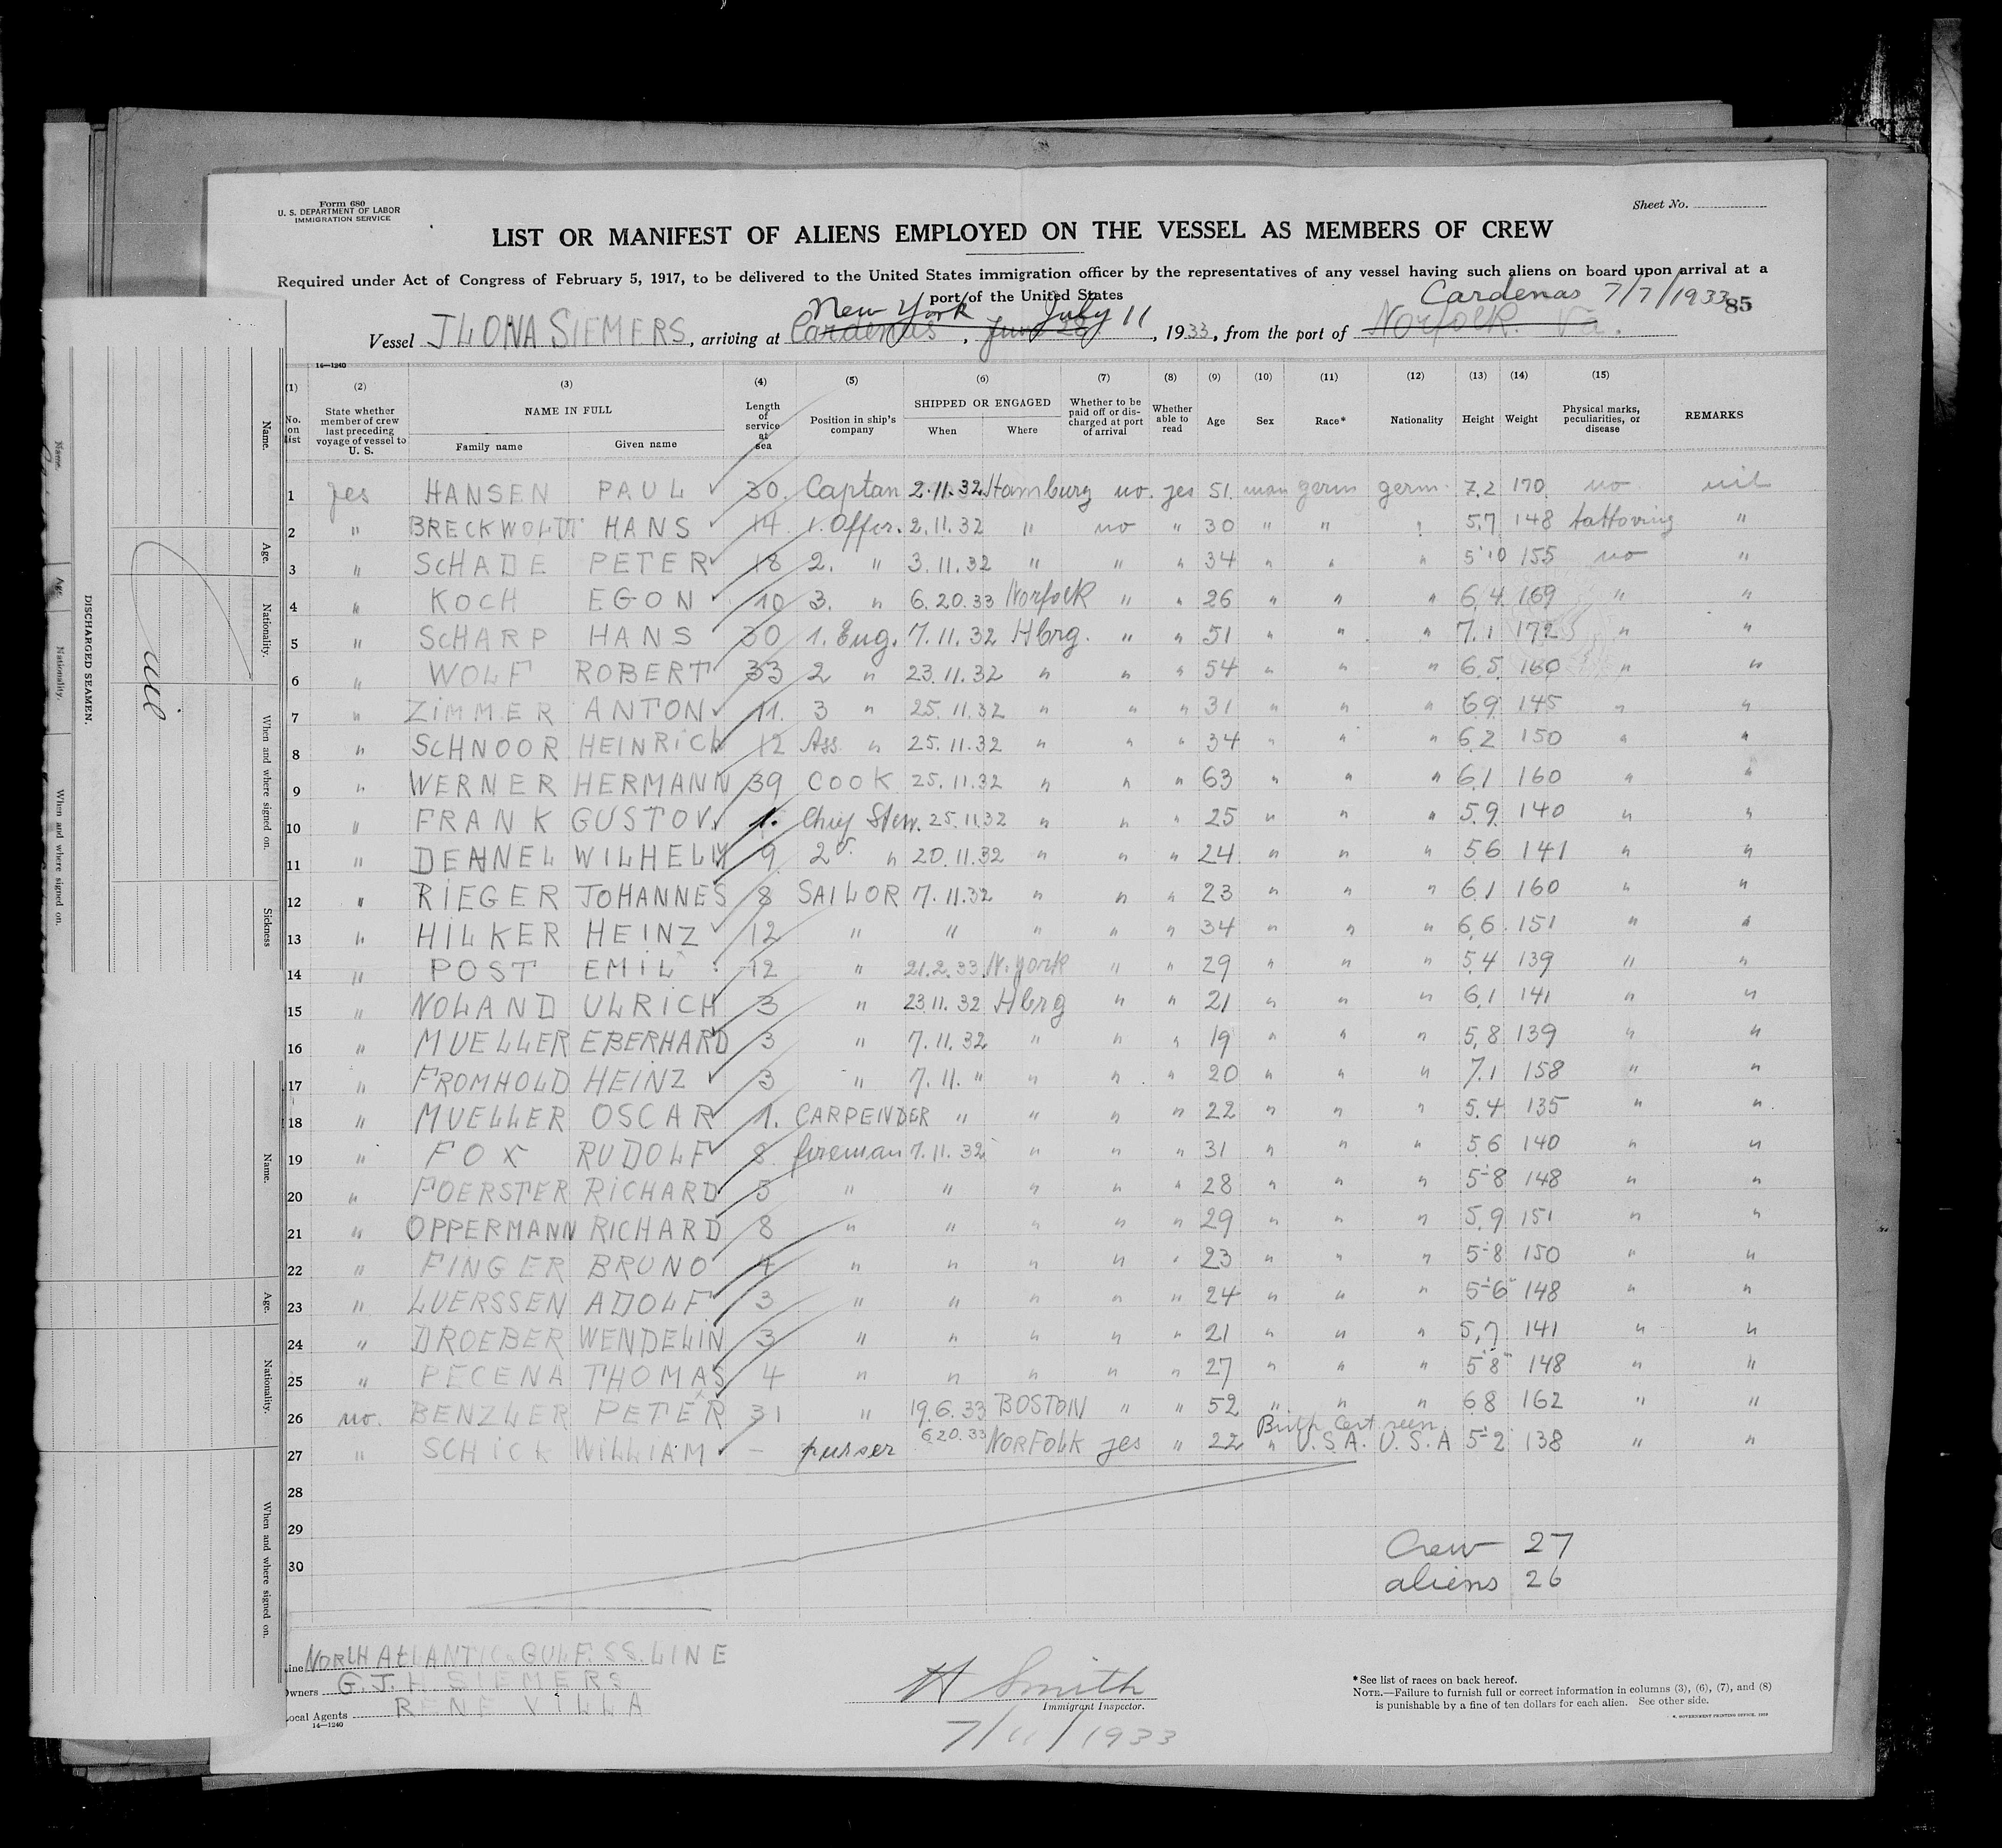 Form 680
U. S. DEPARTMENT OF LABOR
IMMIGRATION SERVICE
Sheet No.
LIST OR MANIFEST OF ALIENS EMPLOYED ON THE VESSEL AS MEMBERS OF CREW
Required under Act of Congress of February 5, 1917, to be delivered to the United States immigration officer by the representatives of any vessel having such aliens on board upon arrival at a
port of the United States
New York July 11 Cardenas 7/7/1933 85
Vessel JLONA SIEMERS, arriving at Cardenas, June 28, 1933, from the port of Norfolk. Va.
14—1240
(1) (2) (3) (4) (5) (6) (7) (8) (9) (10) (11) (12) (13) (14) (15)
No. on list State whether member of crew last preceding voyage of vessel to U. S. NAME IN FULL Family name Given name Length of service at sea Position in ship's company SHIPPED OR ENGAGED When Where Whether to be paid off or discharged at port of arrival Whether able to read Age Sex Race* Nationality Height Weight Physical marks, peculiarities, or disease REMARKS
1 yes HANSEN PAUL ✓ 30. Captan 2.11.32 Hamburg no. yes 51. man germ germ. 7.2 170 no nil
2 " BRECKWOLDT HANS ✓ 14 1. Offcr. 2.11.32 " no " 30 " " " 5.7 148 tattoving "
3 " SCHADE PETER ✓ 18 2. " 3.11.32 " " " 34 " " " 5'10 155 no "
4 " KOCH EGON ✓ 10 3. " 6.20.33 Norfolk " " 26 " " " 6,4 169 " "
5 " SCHARP HANS ✓ 30 1. Eng. 7.11.32 Hbrg. " " 51 " " " 7.1 172 " "
6 " WOLF ROBERT ✓ 33 2 " 23.11.32 " " " 54 " " " 6.5 160 " "
7 " ZIMMER ANTON ✓ 11. 3 " 25.11.32 " " " 31 " " " 6.9 145 " "
8 " SCHNOOR HEINRICH ✓ 12 Ass. " 25.11.32 " " " 34 " " " 6.2 150 " "
9 " WERNER HERMANN 39 COOK 25.11.32 " " " 63 " " " 6.1 160 " "
10 " FRANK GUSTOV. ✓ 1. Chief Stew. 25.11.32 " " " 25 " " " 5.9. 140 " "
11 " DEHNEL WILHELM ✓ 9 2. " 20.11.32 " " " 24 " " " 5.6 141 " "
12 " RIEGER JOHANNES 8 SAILOR 7.11.32 " " " 23 " " " 6.1 160 " "
13 " HILKER HEINZ ✓ 12 " " " " " 34 " " " 6,6. 151 " "
14 " POST EMIL 12 " 21.2.33 N. york " " 29 " " " 5.4 139 " "
15 " NOLAND ULRICH ✓ 3 " 23.11.32 Hbrg " " 21 " " " 6,1 141 " "
16 " MUELLER EBERHARD 3 " 7.11.32 " " " 19 " " " 5,8 139 " "
17 " FROMHOLD HEINZ ✓ 3 " 7.11. " " " " 20 " " " 7.1 158 " "
18 " MUELLER OSCAR ✓ 1. CARPENDER " " " " 22 " " " 5.4 135 " "
19 " FOX RUDOLF ✓ 8 fireman 7.11.32 " " " 31 " " " 5.6 140 " "
20 " FOERSTER RICHARD ✓ 5 " " " " " 28 " " " 5-8 148 " "
21 " OPPERMANN RICHARD 8 " " " " " 29 " " " 5.9 151 " "
22 " FINGER BRUNO 4 " " " " " 23 " " " 5-8 150 " "
23 " LUERSSEN ADOLF ✓ 3 " " " " " 24 " " " 5-6 148 " "
24 " DROEBER WENDELIN 3 " " " " " 21 " " " 5,7 141 " "
25 " PECENA THOMAS ✓ 4 " " " " " 27 " " " 5'8" 148 " "
26 no. BENZLER PETER 31 " 19.6.33 BOSTON " " 52 " " " 6.8 162 " "
Birth Cert seen
27 " SCHICK WILLIAM ✓ — purser 6.20.33 NORFOLK yes " 22 " U.S.A. U.S.A 5-2 138 " "
28
29
30
Crew 27
aliens 26
Line NORTH ATLANTIC & GULF. SS. LINE
Owners G. J. H. SIEMERS
Local Agents RENE VILLA
14—1240
H Smith
Immigrant Inspector.
7/11/1933
*See list of races on back hereof.
NOTE.—Failure to furnish full or correct information in columns (3), (6), (7), and (8)
is punishable by a fine of ten dollars for each alien. See other side.
GOVERNMENT PRINTING OFFICE
DISCHARGED SEAMEN.
Name.
Age.
Nationality.
When and where signed on.
nil
Name.
Age.
Nationality.
When and where signed on.
Sickness
Name.
Age.
Nationality.
When and where signed on.